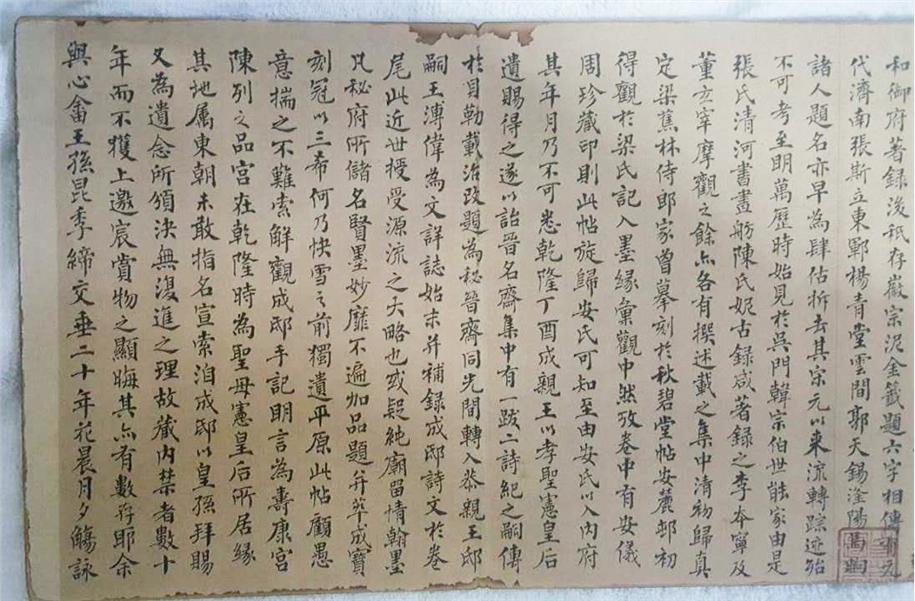 和御府著録後祇存徽宗泥金籤題六字相傳元
代濟南張斯立東鄆楊青堂雲間郭天錫滏陽馬昫
諸人題名亦早為肆估折去其宋元以來流轉踪迹殆
不可考至明萬歷時始見於吳門韓宗伯世能家由是
張氏清河書畫舫陳氏妮古録咸著録之李本寧及
董玄宰摩觀之餘亦各有撰述載之集中清初歸真
定梁蕉林侍郎家曾摹刻於秋碧堂帖安麓邨初
得觀於梁氏記入墨緣彙觀中然攷卷中有安儀
周珍藏印則此帖旋歸安氏可知至由安氏以入內府
其年月乃不可悉乾隆丁酉成親王以孝聖憲皇后
遺賜得之遂以詒晉名齋集中有一跋二詩紀之嗣傳
於貝勒載治改題為秘晉齋同光間轉入恭親王邸
嗣王溥偉為文詳誌始末并補録成邸詩文於卷
尾此近世授受源流之大略也或疑純廟留情翰墨
凡秘府所儲名賢墨妙靡不遍加品題并萃成寶
刻冠以三希何乃快雪之前獨遺平原此帖顧愚
意揣之不難索解觀成邸手記明言為壽康宮
陳列之品宮在乾隆時為聖母憲皇后所居緣
其地属東朝未敢指名宣索洎成邸以皇孫拜賜
又為遺念所頒決無復進之理故藏內禁者數十
年而不獲上邀宸賞物之顯晦其亦有數存耶余
與心畬王孫昆季締交垂二十年花晨月夕觴詠